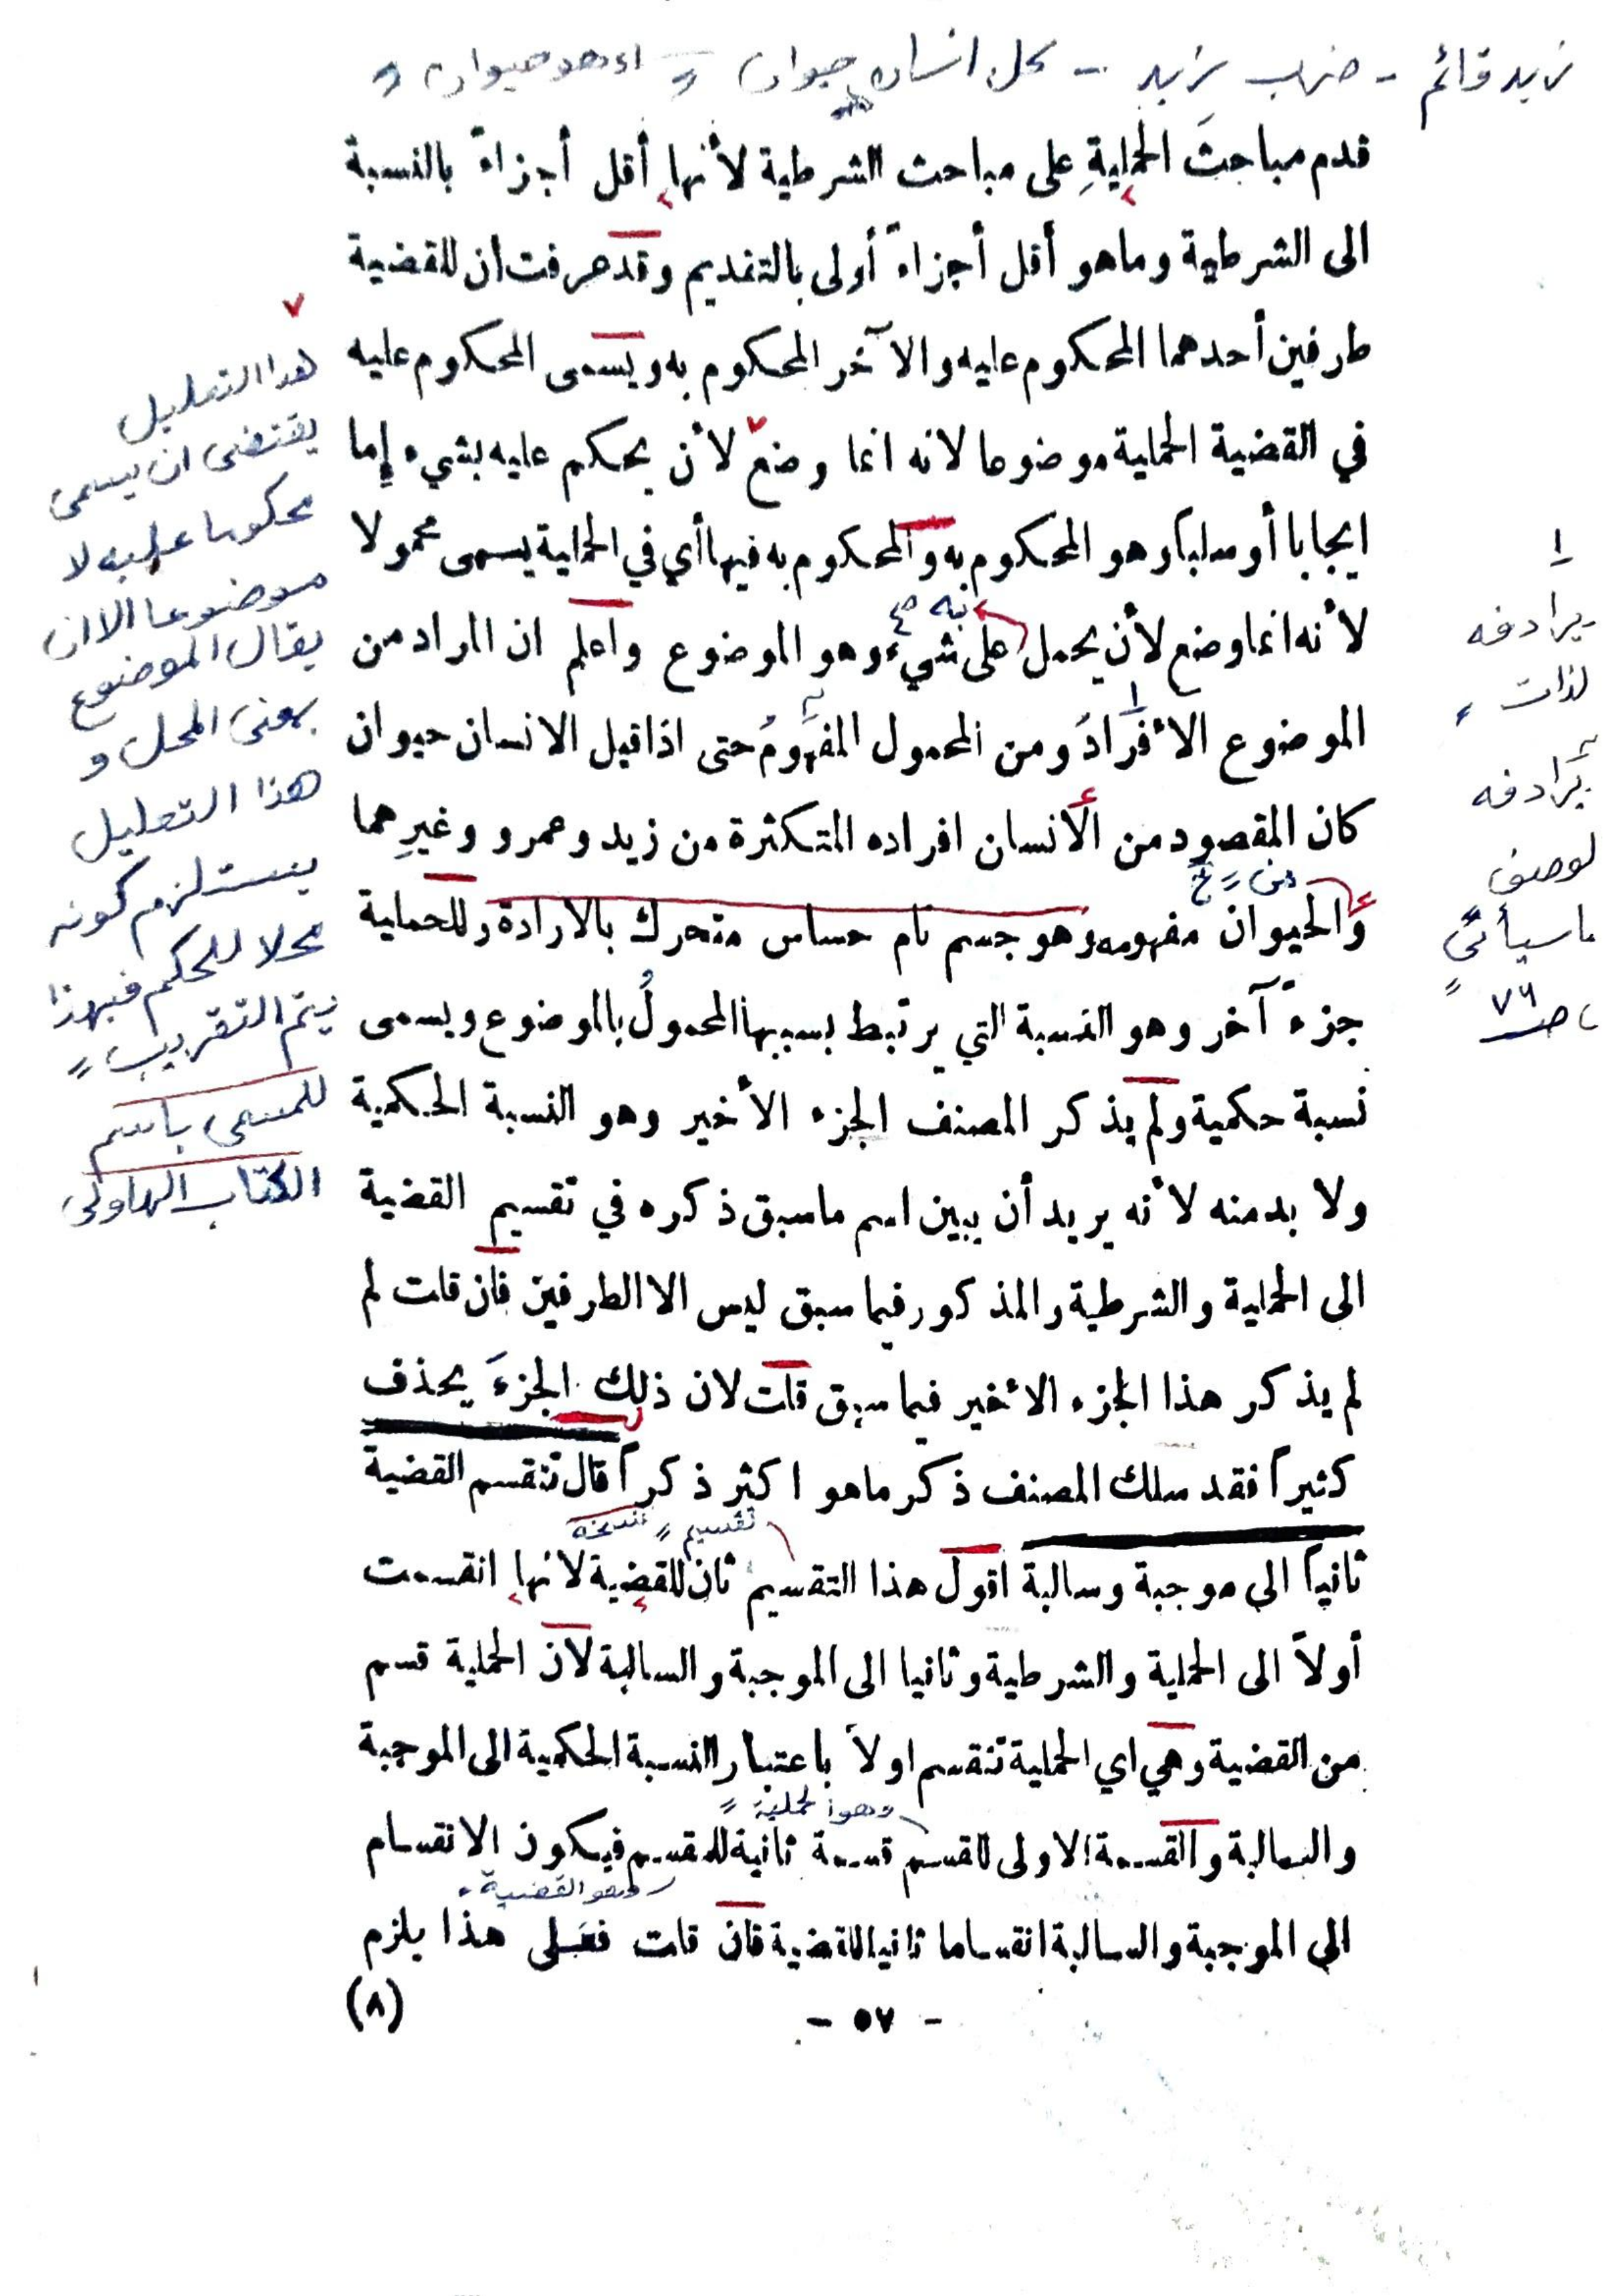 زيد قائم - ضرب زيد - كل انسان حيوان
قدم مباحثَ الحمليةِ على مباحث الشرطية لأنها أقل أجزاءً بالنسبة
الى الشرطية وما هو أقل أجزاءً أولى بالتقديم وقد عرفت ان للقضية
طرفين أحدهما المحكوم عليه والآخر المحكوم به ويسمى المحكوم عليه
في القضية الحملية موضوعا لانه انما وضع لأن يحكم عليه بشيء إما
ايجابا أو سلباً وهو المحكوم به والمحكوم به فيها أي في الحملية يسمى محمولا
به
لأنه انما وضع لأن يحمل على شيء وهو الموضوع واعلم ان المراد من
الموضوع الأفرادُ ومن المحمول المفهومُ حتى اذا قيل الانسان حيوان
كان المقصود من الأنسان افراده المتكثرة من زيد وعمرو وغيرِهما
من
والحيوان مفهومه وهو جسم نام حساس متحرك بالارادة وللحملية
جزءٌ آخر وهو النسبة التي يرتبط بسببها المحمولُ بالموضوع ويسمى
نسبة حكمية ولم يذكر المصنف الجزء الأخير وهو النسبة الحكمية
ولا بد منه لأنه يريد أن يبين اسم ما سبق ذكره في تقسيم القضية
الى الحملية والشرطية والمذكور فيما سبق ليس الا الطرفين فان قلت لم
لم يذكر هذا الجزء الأخير فيما سبق قلت لان ذلك الجزءَ يحذف
كثيراً فقد سلك المصنف ذكر ما هو اكثر ذكراً قال تنقسم القضية
تقسيم نسخه
ثانياً الى موجبة وسالبة اقول هذا التقسيم ثان للقضية لانها انقسمت
أولاً الى الحملية والشرطية وثانيا الى الموجبة والسالبة لان الحملية قسم
من القضية وهي اي الحملية تنقسم اولاً باعتبار النسبة الحكمية الى الموجبة
وهو الحملية
والسالبة والقسمة الاولى للقسم قسمة ثانية للمقسم فيكون الانقسام
وهو القضية
الى الموجبة والسالبة انقساما ثانيا للقضية فان قلت فعلى هذا يلزم
- ٥٧ -
(٨)
هذا التعليل
يقتضى ان يسمى
محكوما عليه لا
موضوعا الا ان
يقال الموضوع
بمعنى المحل و
هذا التعليل
يستلزم كونه
محلا للحكم فبهذا
يتم التقريب
للمسمى باسم
الكتاب
١
يرادفه
لذات
يرادفه
لوصف
ما سيأتى
ص ٧٦